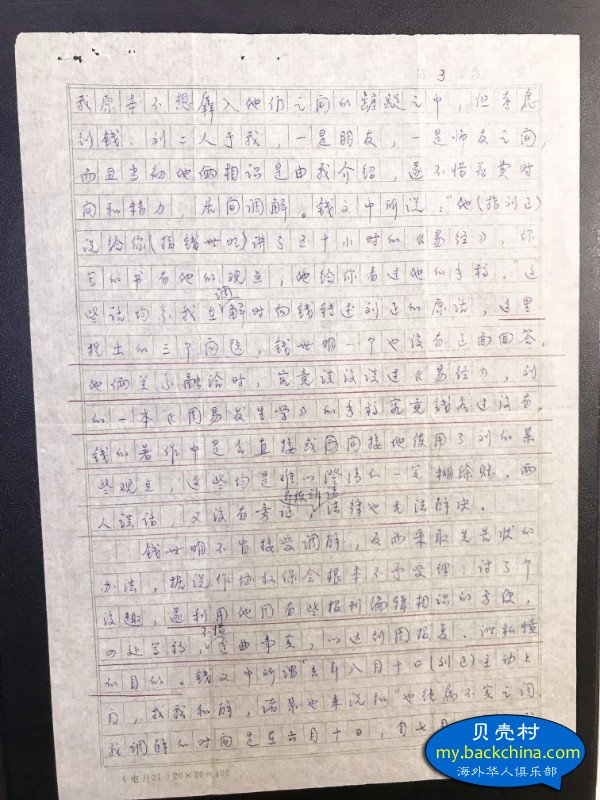 3
我原本不想搀入他们之间的纠纷之中,但考虑
到钱、刘二人于我,一是朋友,一是师友之间,
而且当初他俩相识是由我介绍,遂不惜花费时
间和精力,居间调解。钱文中所说:“他(指刘正)
说给你(指钱世明)讲了五十小时的《易经》,你
写的书有他的观点,他给你看过他的手稿。”这
些话均系我在调解时向钱转述刘正的原话,这里
提出的三个问题,钱世明一个也没有正面回答。
他俩关系融洽时,究竟谈没谈过《易经》,刘
的一本《周易发生学》的手稿究竟钱看过没有,
钱的著作中是否直接或间接地使用了刘的某
些观点,这些均是难以澄清的一笔糊涂账。两
人谈话,又没有旁证,法律也无法解决。
钱世明不肯接受调解,反而采取先告状的
办法,据说作协权保会根本不予受理,讨了个
没趣,遂利用他同有些报刊编辑相识的方便,
四处写稿,不惜歪曲事实,以达到图报复、泄私愤
的目的。钱文中所谓“去年八月十日(刘正)主动上
门,找我和解,诺某也来说和”也纯属不实之词,
我调解的时间是在六月十日,自七月
(电开21)20×20=400
贝壳村
my.backchina.com
海外华人俱乐部